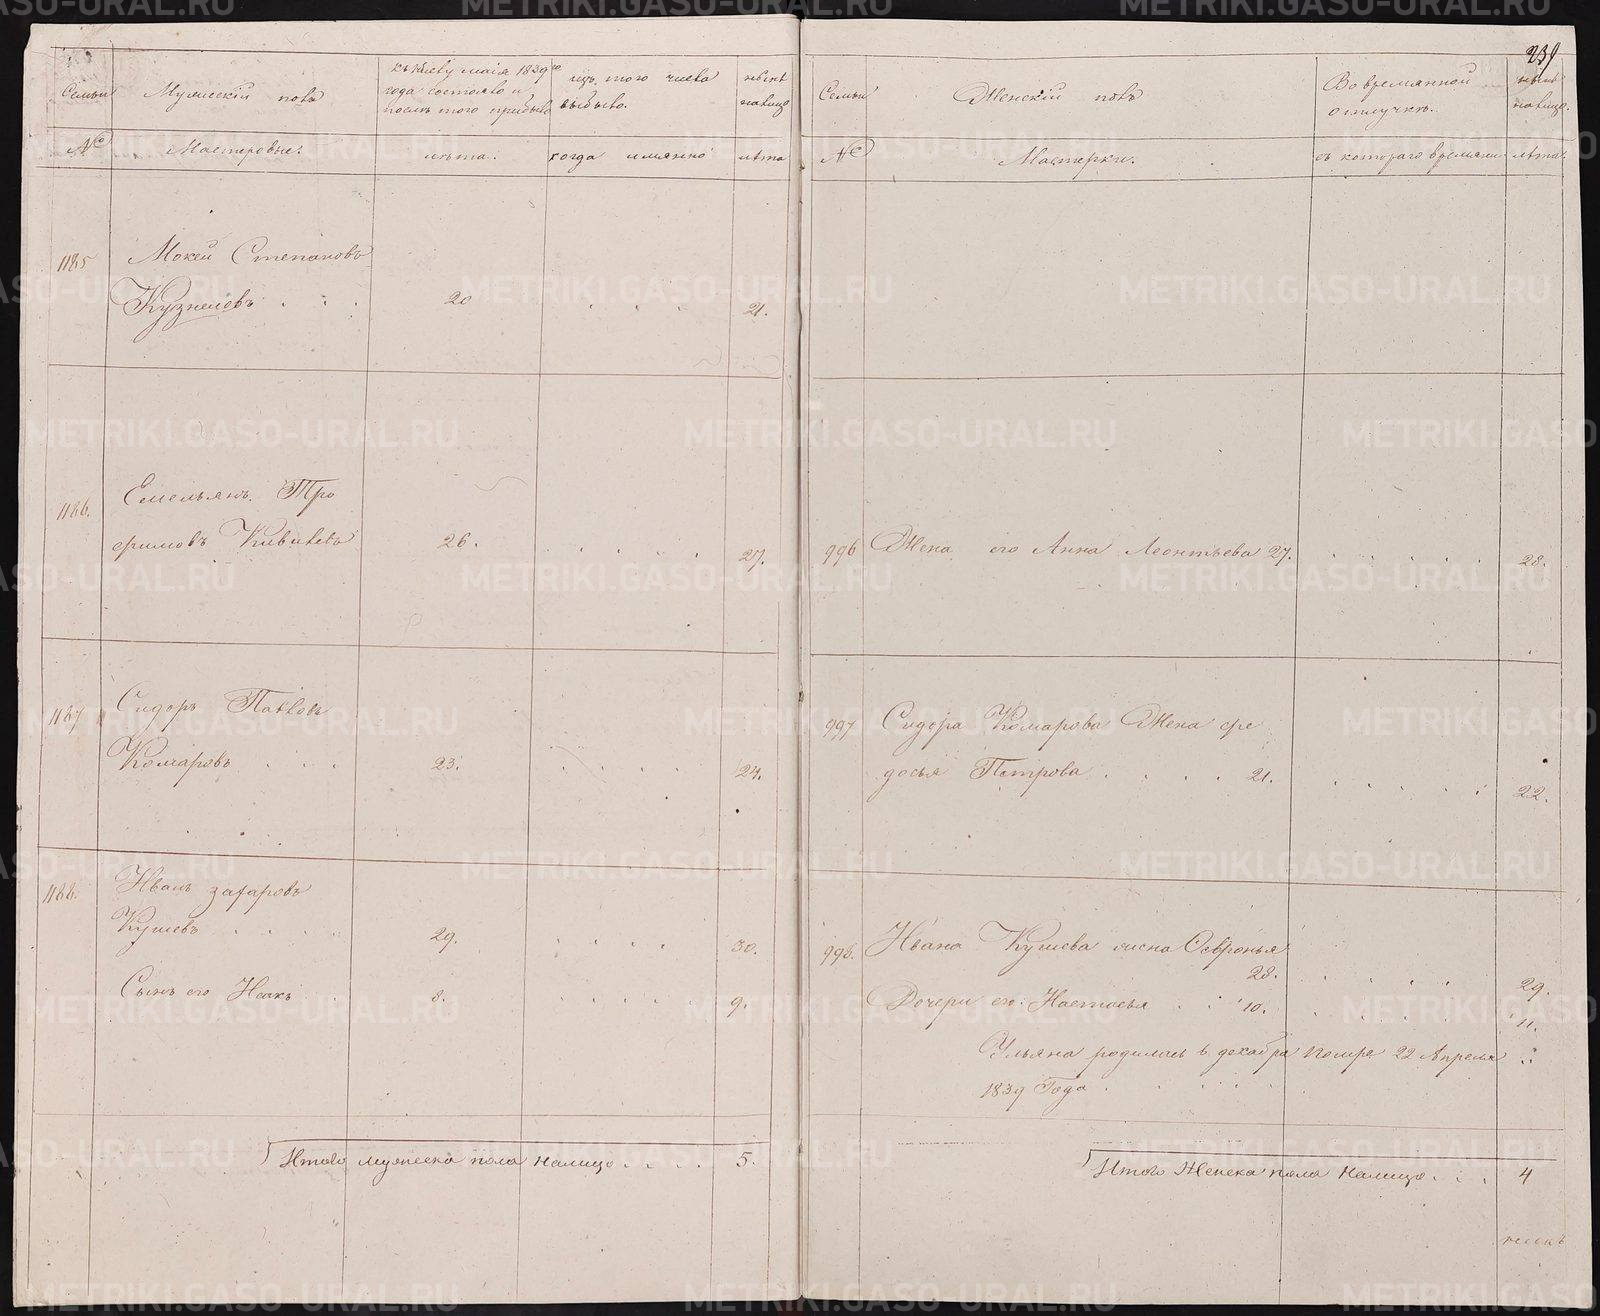 239
Семьи
Мужескій полъ
къ 1му маія 1839го
года состояло и
послѣ того прибыло
изъ того числа
выбыло.
нынѣ
налицо
№
Мастеровые.
лѣта.
когда имянно
лѣта
1185
Мокей Степановъ
Кузнецовъ . . . 20 . . . 21.
1186.
Емельянъ Тро
фимовъ 26. . . . . 27.
1187
Сидоръ Павловъ
Комаровъ . . . 23. . . . . 24.
1188.
Иванъ захаровъ
Кушевъ . . . . 29. . . . . 30.
Сынъ его Исакъ . . 8. . . . . 9.
Итого мужеска пола налицо . . . . 5.
Семьи
Женскій полъ
Во временной
отлучкѣ.
нынѣ
налицо.
№
Мастерки.
съ котораго времяни
лѣта.
996 Жена его Анна Леонтьева 27. . . . . . 28.
997 Сидора Комарова Жена фе
досья Петрова . . . . 21. . . . . . 22.
998. Ивана Кушева жена Февронья
28. . . . . 29.
Дочери его Настасья . . . 10. . . . . 11.
Ульяна родилась в декабря помре 22 Апреля
1839 Года . . . . .
Итого Женска пола налицо . . . 4